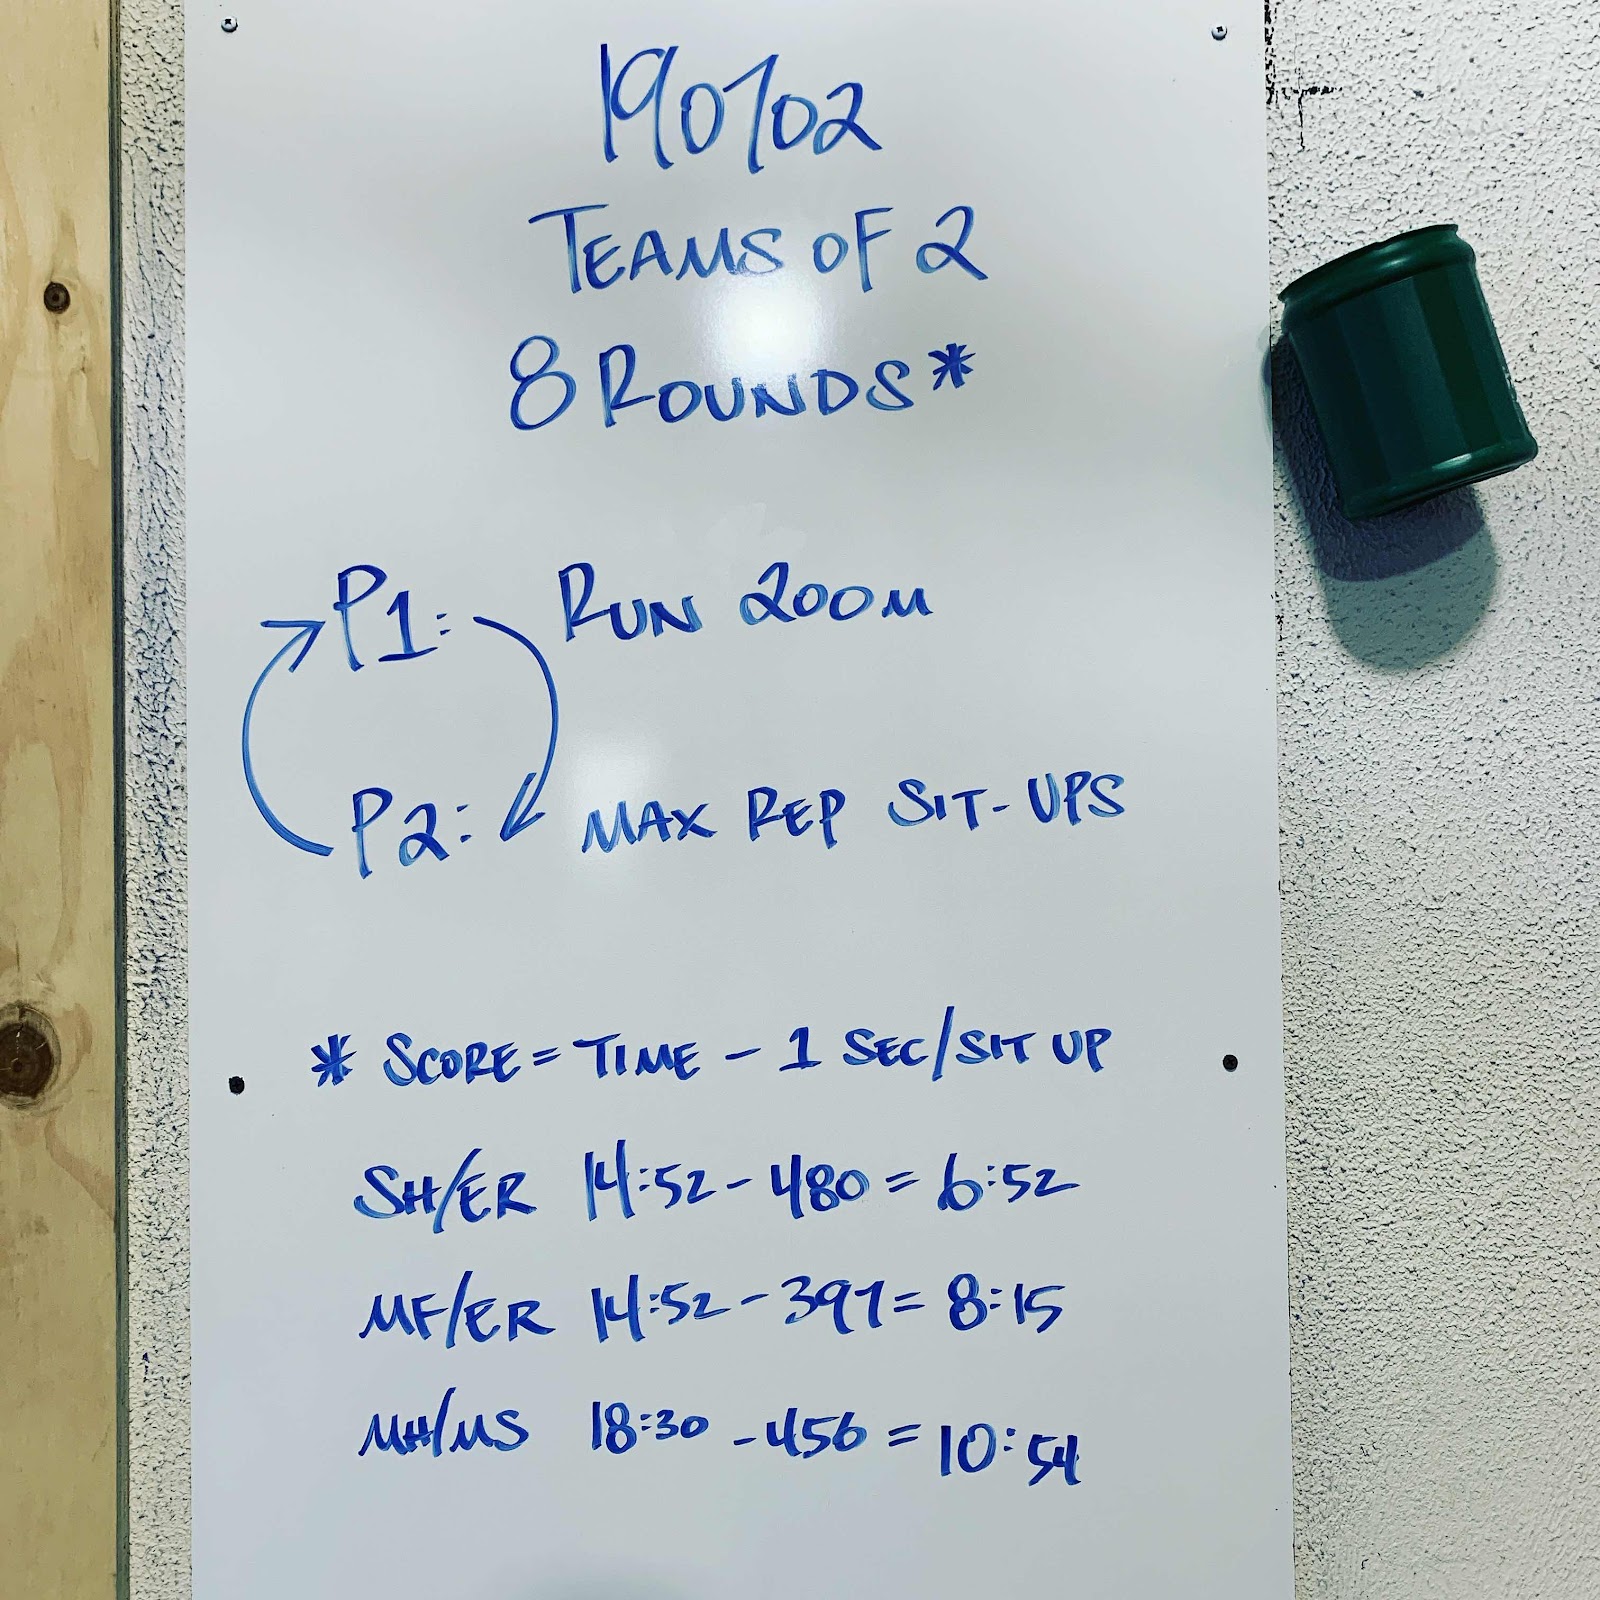 190702
TEAMS OF 2
8 ROUNDS*
P1: RUN 200M
P2: MAX REP SIT-UPS
* SCORE = TIME - 1 SEC/SIT UP
SH/ER 14:52 - 480 = 6:52
MF/ER 14:52 - 397 = 8:15
MH/MS 18:30 - 456 = 10:54